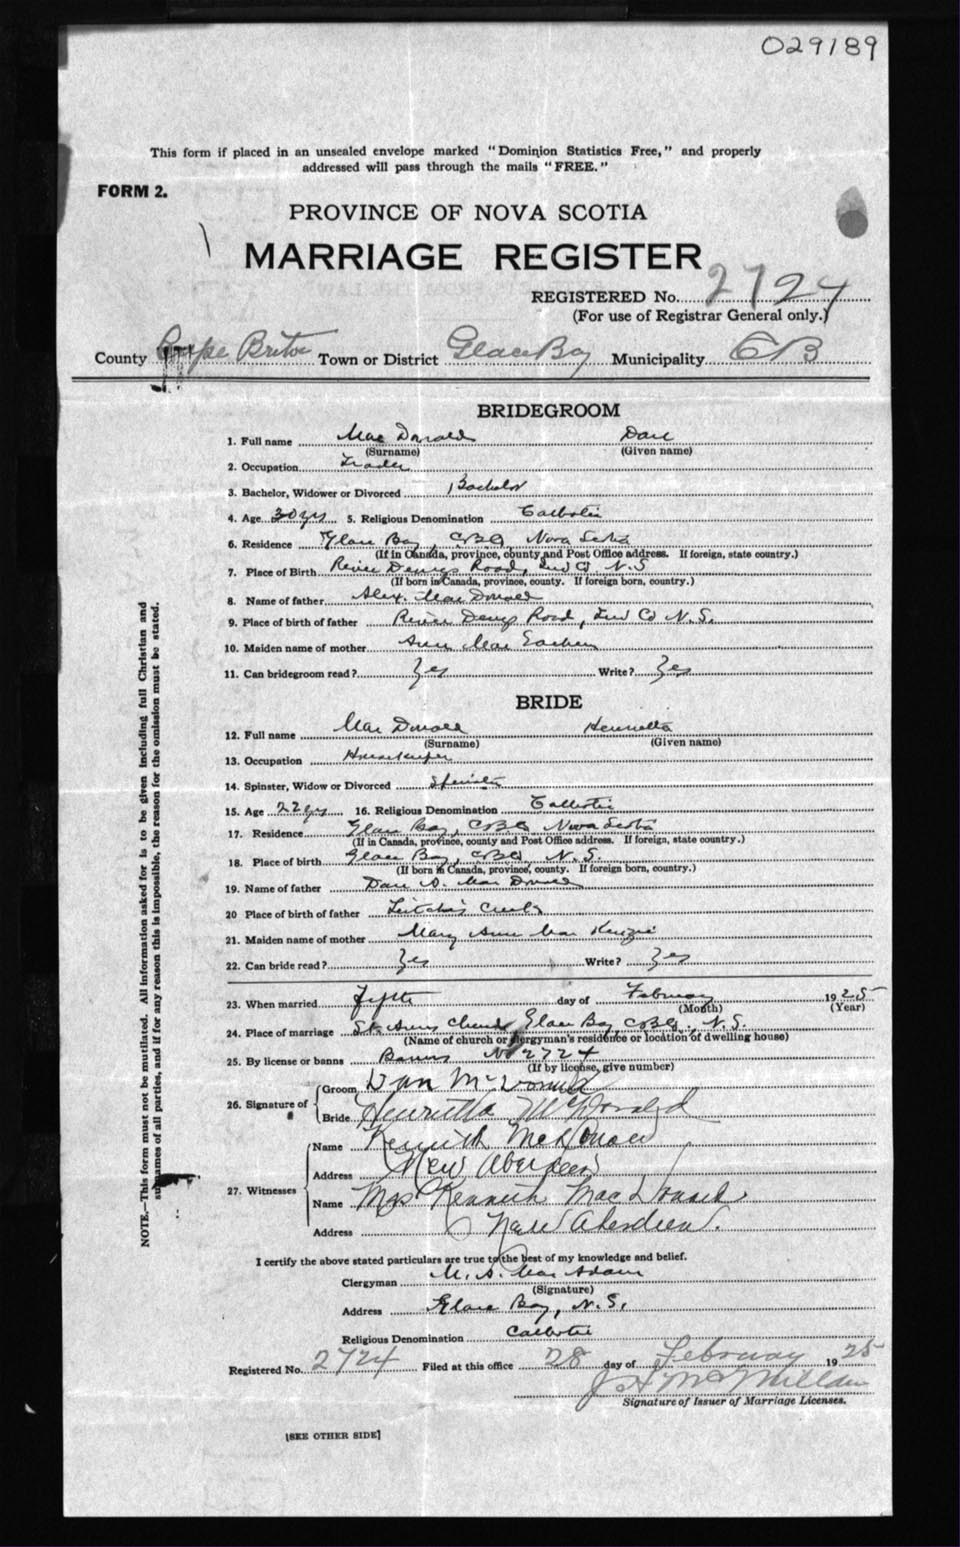 029189
This form if placed in an unsealed envelope marked "Dominion Statistics Free," and properly
addressed will pass through the mails "FREE."
FORM 2.
PROVINCE OF NOVA SCOTIA
MARRIAGE REGISTER
REGISTERED No. 2724
(For use of Registrar General only.)
County Cape Breton Town or District Glace Bay Municipality CB
BRIDEGROOM
1. Full name Mac Donald Dan
(Surname) (Given name)
2. Occupation Trader
3. Bachelor, Widower or Divorced Bachelor
4. Age 30 yrs 5. Religious Denomination Catholic
6. Residence Glace Bay, CBCo Nova Scotia
(If in Canada, province, county and Post Office address. If foreign, state country.)
7. Place of Birth River Denys Road, Inv Co N.S.
(If born in Canada, province, county. If foreign born, country.)
8. Name of father Alex. Mac Donald
9. Place of birth of father River Denys Road, Inv Co N.S.
10. Maiden name of mother Ann Mac Eachern
11. Can bridegroom read? Yes Write? Yes
BRIDE
12. Full name Mac Donald Henrietta
(Surname) (Given name)
13. Occupation Housekeeper
14. Spinster, Widow or Divorced Spinster
15. Age 22 yrs 16. Religious Denomination Catholic
17. Residence Glace Bay, CBCo Nova Scotia
(If in Canada, province, county and Post Office address. If foreign, state country.)
18. Place of birth Glace Bay, CBCo, N.S.
(If born in Canada, province, county. If foreign born, country.)
19. Name of father Dan A. Mac Donald
20 Place of birth of father Leitches Creek
21. Maiden name of mother Mary Ann Mac Kenzie
22. Can bride read? Yes Write? Yes
23. When married Fifth day of February 1925
(Month) (Year)
24. Place of marriage St. Anns Church Glace Bay CBCo, N.S.
(Name of church or clergyman's residence or location of dwelling house)
25. By license or banns Banns No 2724
(If by license, give number)
26. Signature of
Groom Dan McDonald
Bride Henrietta McDonald
27. Witnesses
Name Kenneth McDonald
Address New Aberdeen
Name Mrs Kenneth MacDonald.
Address New Aberdeen.
I certify the above stated particulars are true to the best of my knowledge and belief.
Clergyman M. A. Mac Adam
(Signature)
Address Glace Bay, N.S.
Religious Denomination Catholic
Registered No. 2724 Filed at this office 28 day of February 1925
J H McMillan
Signature of Issuer of Marriage Licenses.
[SEE OTHER SIDE]
NOTE.—This form must not be mutilated. All information asked for is to be given including full Christian and
surnames of all parties, and if for any reason this is impossible, the reason for the omission must be stated.